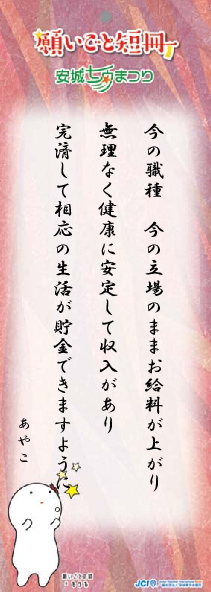 願いごと短冊
安城七夕まつり
今の職種　今の立場のままお給料が上がり
無理なく健康に安定して収入があり
完済して相応の生活が貯金できますように
あやこ
願いごと短冊
JCI